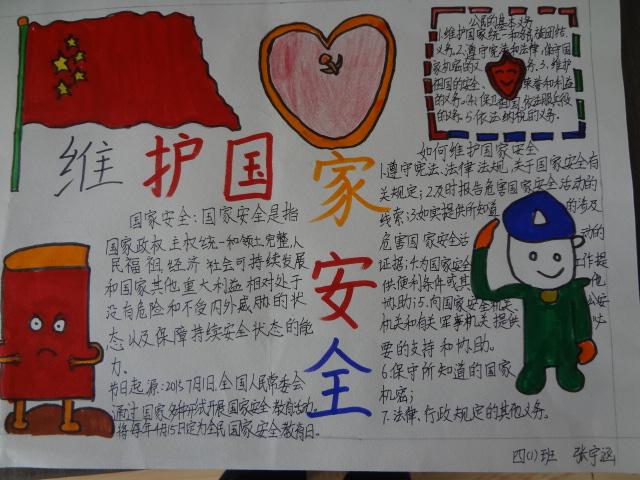 维护国家安全
国家安全:国家安全是指
国家政权、主权统一和领土完整、人
民福祉、经济社会可持续发展
和国家其他重大利益相对处于
没有危险和不受内外威胁的状
态以及保障持续安全状态的能
力。
节日起源:2015年7月1日,全国人民常委会
通过国家
开展国家安全教育活动,
将每年4月15日定为全民国家安全教育日。
公民的基本义务
1.维护国家统一和民族团结
义务.2.遵守宪法和法律,保守国
家机密的义务.3.维护
祖国的安全、荣誉和利益
的义务.4.保卫祖国.依法服兵役
的义务.5.依法纳税的义务.
如何维护国家安全
1.遵守宪法、法律法规,关于国家安全有
关规定;2.及时报告危害国家安全活动的
线索;3.如实提供所知道的涉及
危害国家安全活动的
证据;4.为国家安全工作提
供便利条件或其他
协助;5.向国家安全机关、公安
机关和有关军事机关提供必
要的支持和协助。
6.保守所知道的国家
机密;
7.法律、行政规定的其他义务。
四(1)班 张宇涵